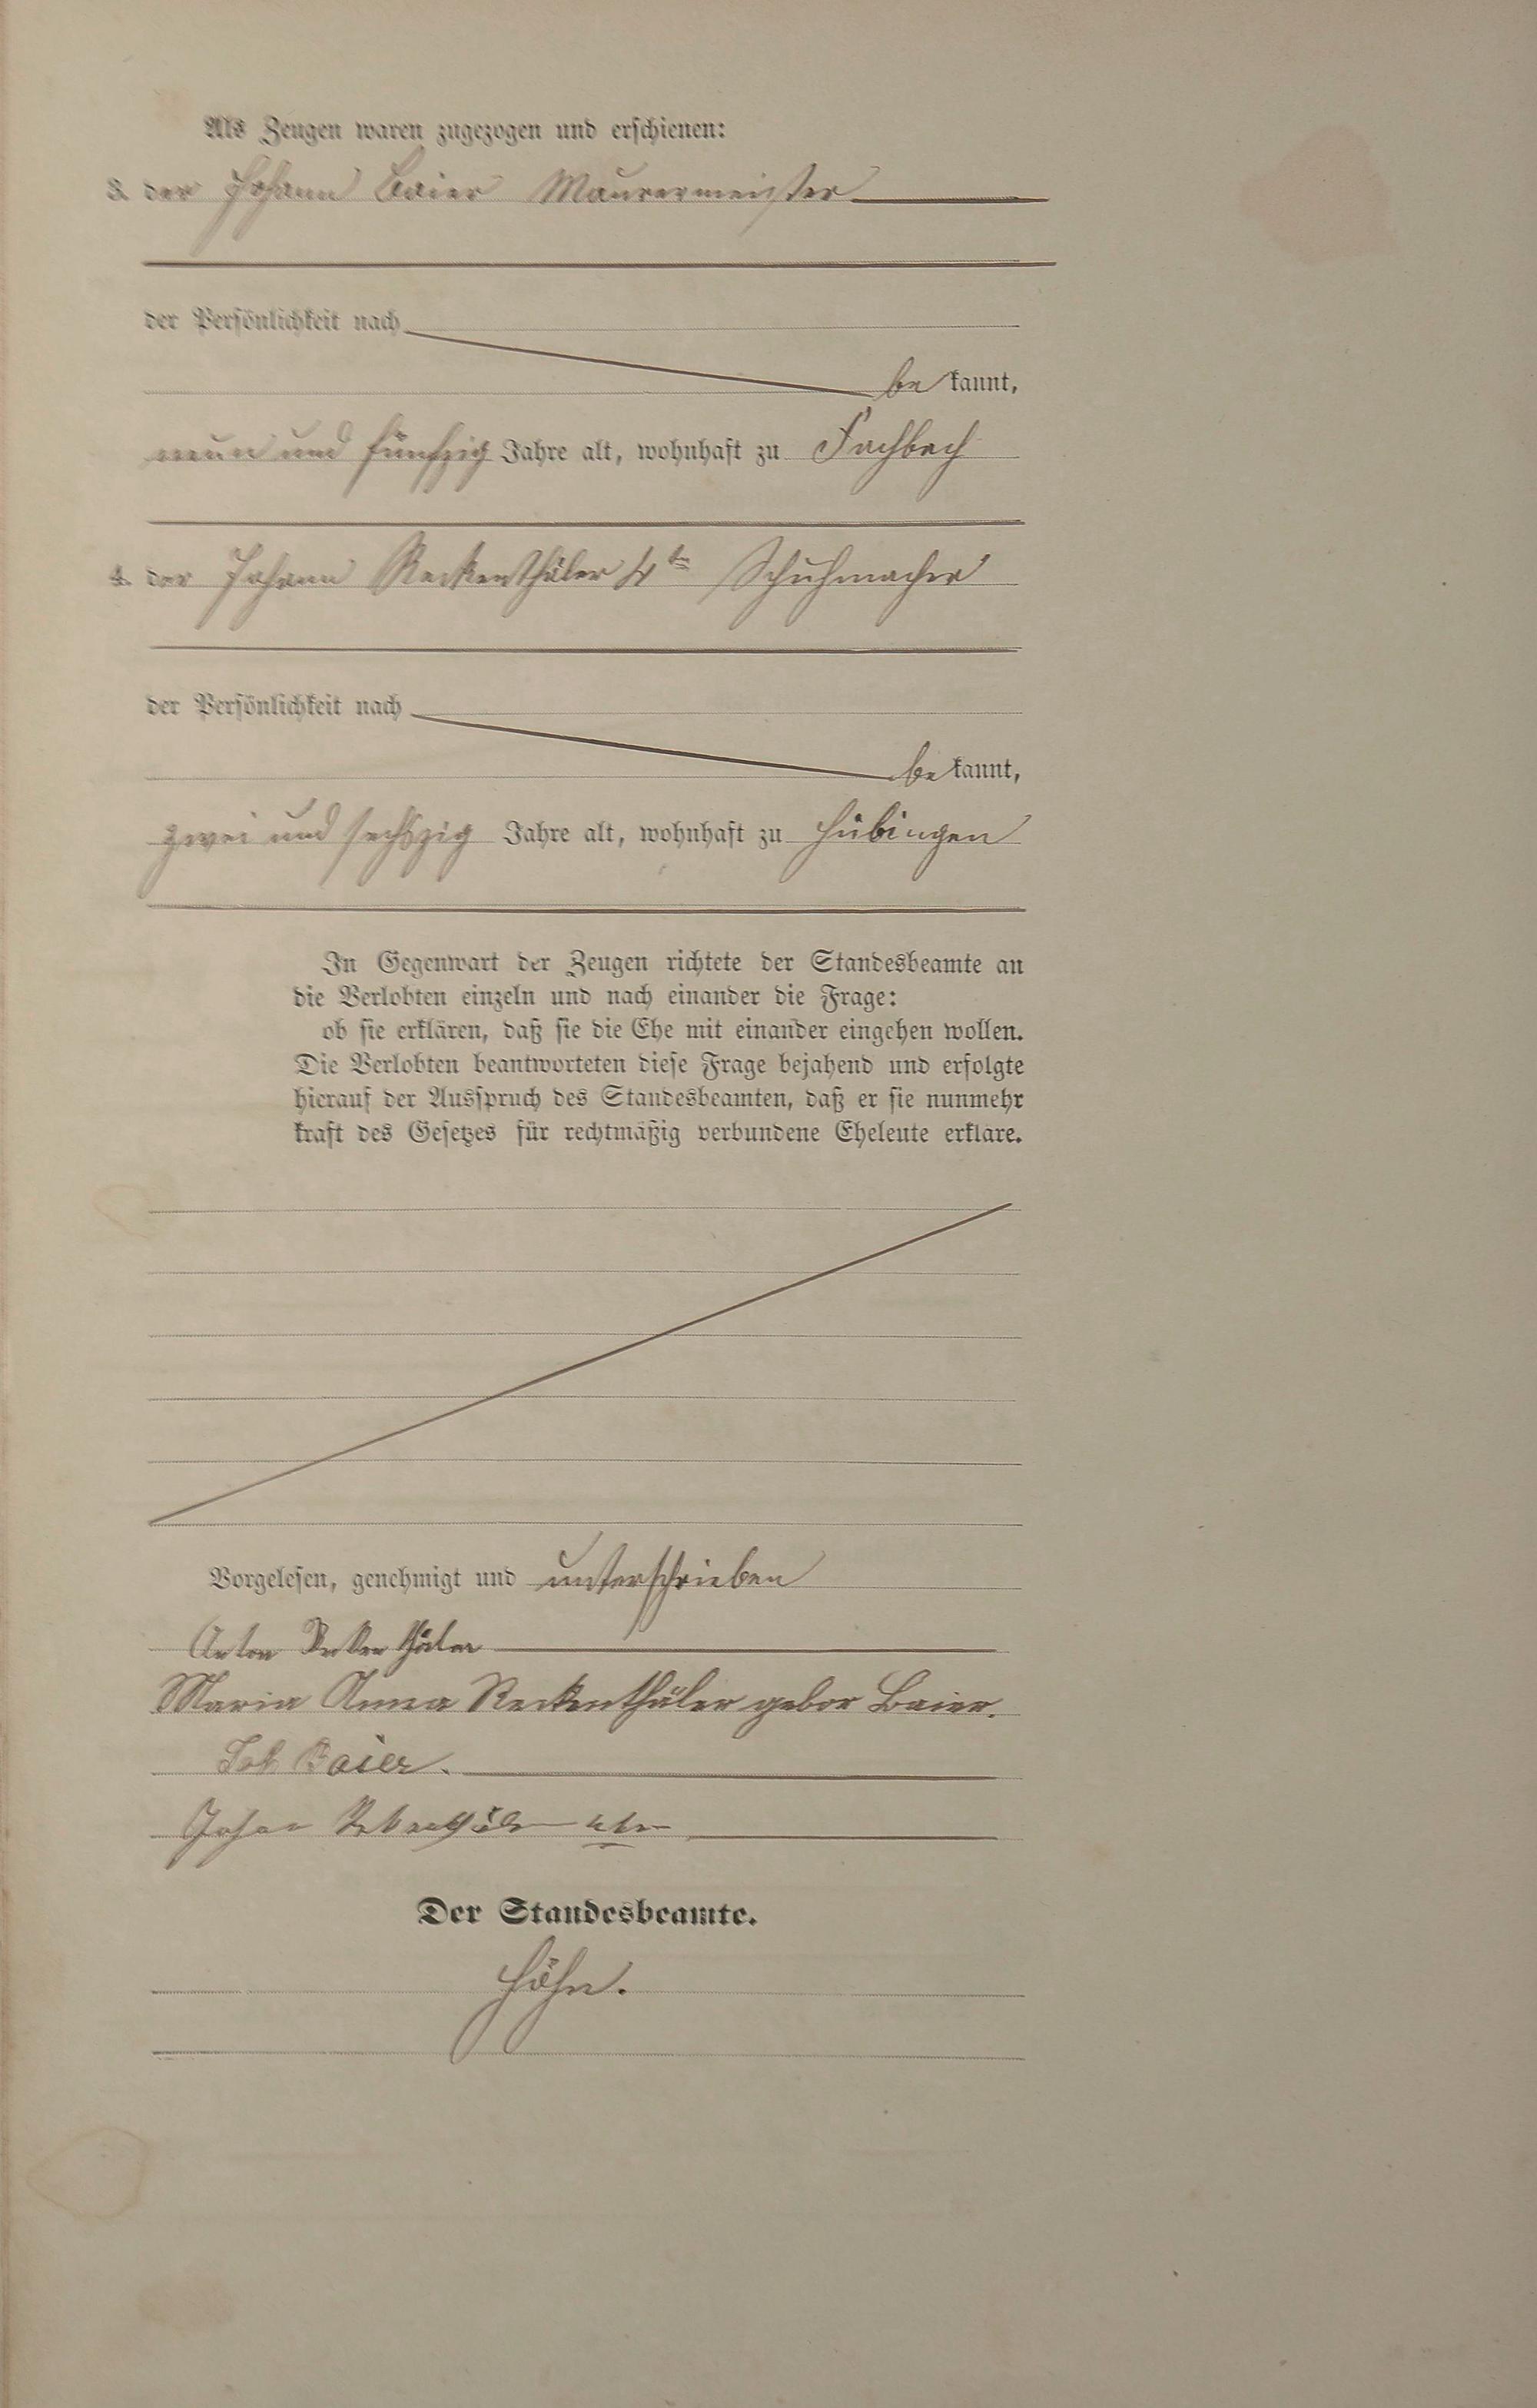 Als Zeugen waren zugezogen und erschienen:
3. der Johann Baier Maurermeister
der Persönlichkeit nach
be kannt,
neun und fünfzig Jahre alt, wohnhaft zu Fachbach
4. der Johann Reckenthäler 4ter Schuhmacher
der Persönlichkeit nach
be kannt,
zwei und sechszig Jahre alt, wohnhaft zu Hübingen
In Gegenwart der Zeugen richtete der Standesbeamte an
die Verlobten einzeln und nach einander die Frage:
ob sie erklären, daß sie die Ehe mit einander eingehen wollen.
Die Verlobten beantworteten diese Frage bejahend und erfolgte
hierauf der Ausspruch des Standesbeamten, daß er sie nunmehr
kraft des Gesetzes für rechtmäßig verbundene Eheleute erkläre.
Vorgelesen, genehmigt und unterschrieben
Anton Reckenthäler
Maria Anna Reckenthäler gebor Baier.
Joh Baier.
Johan Reckenthäler 4ter
Der Standesbeamte.
Höhn.